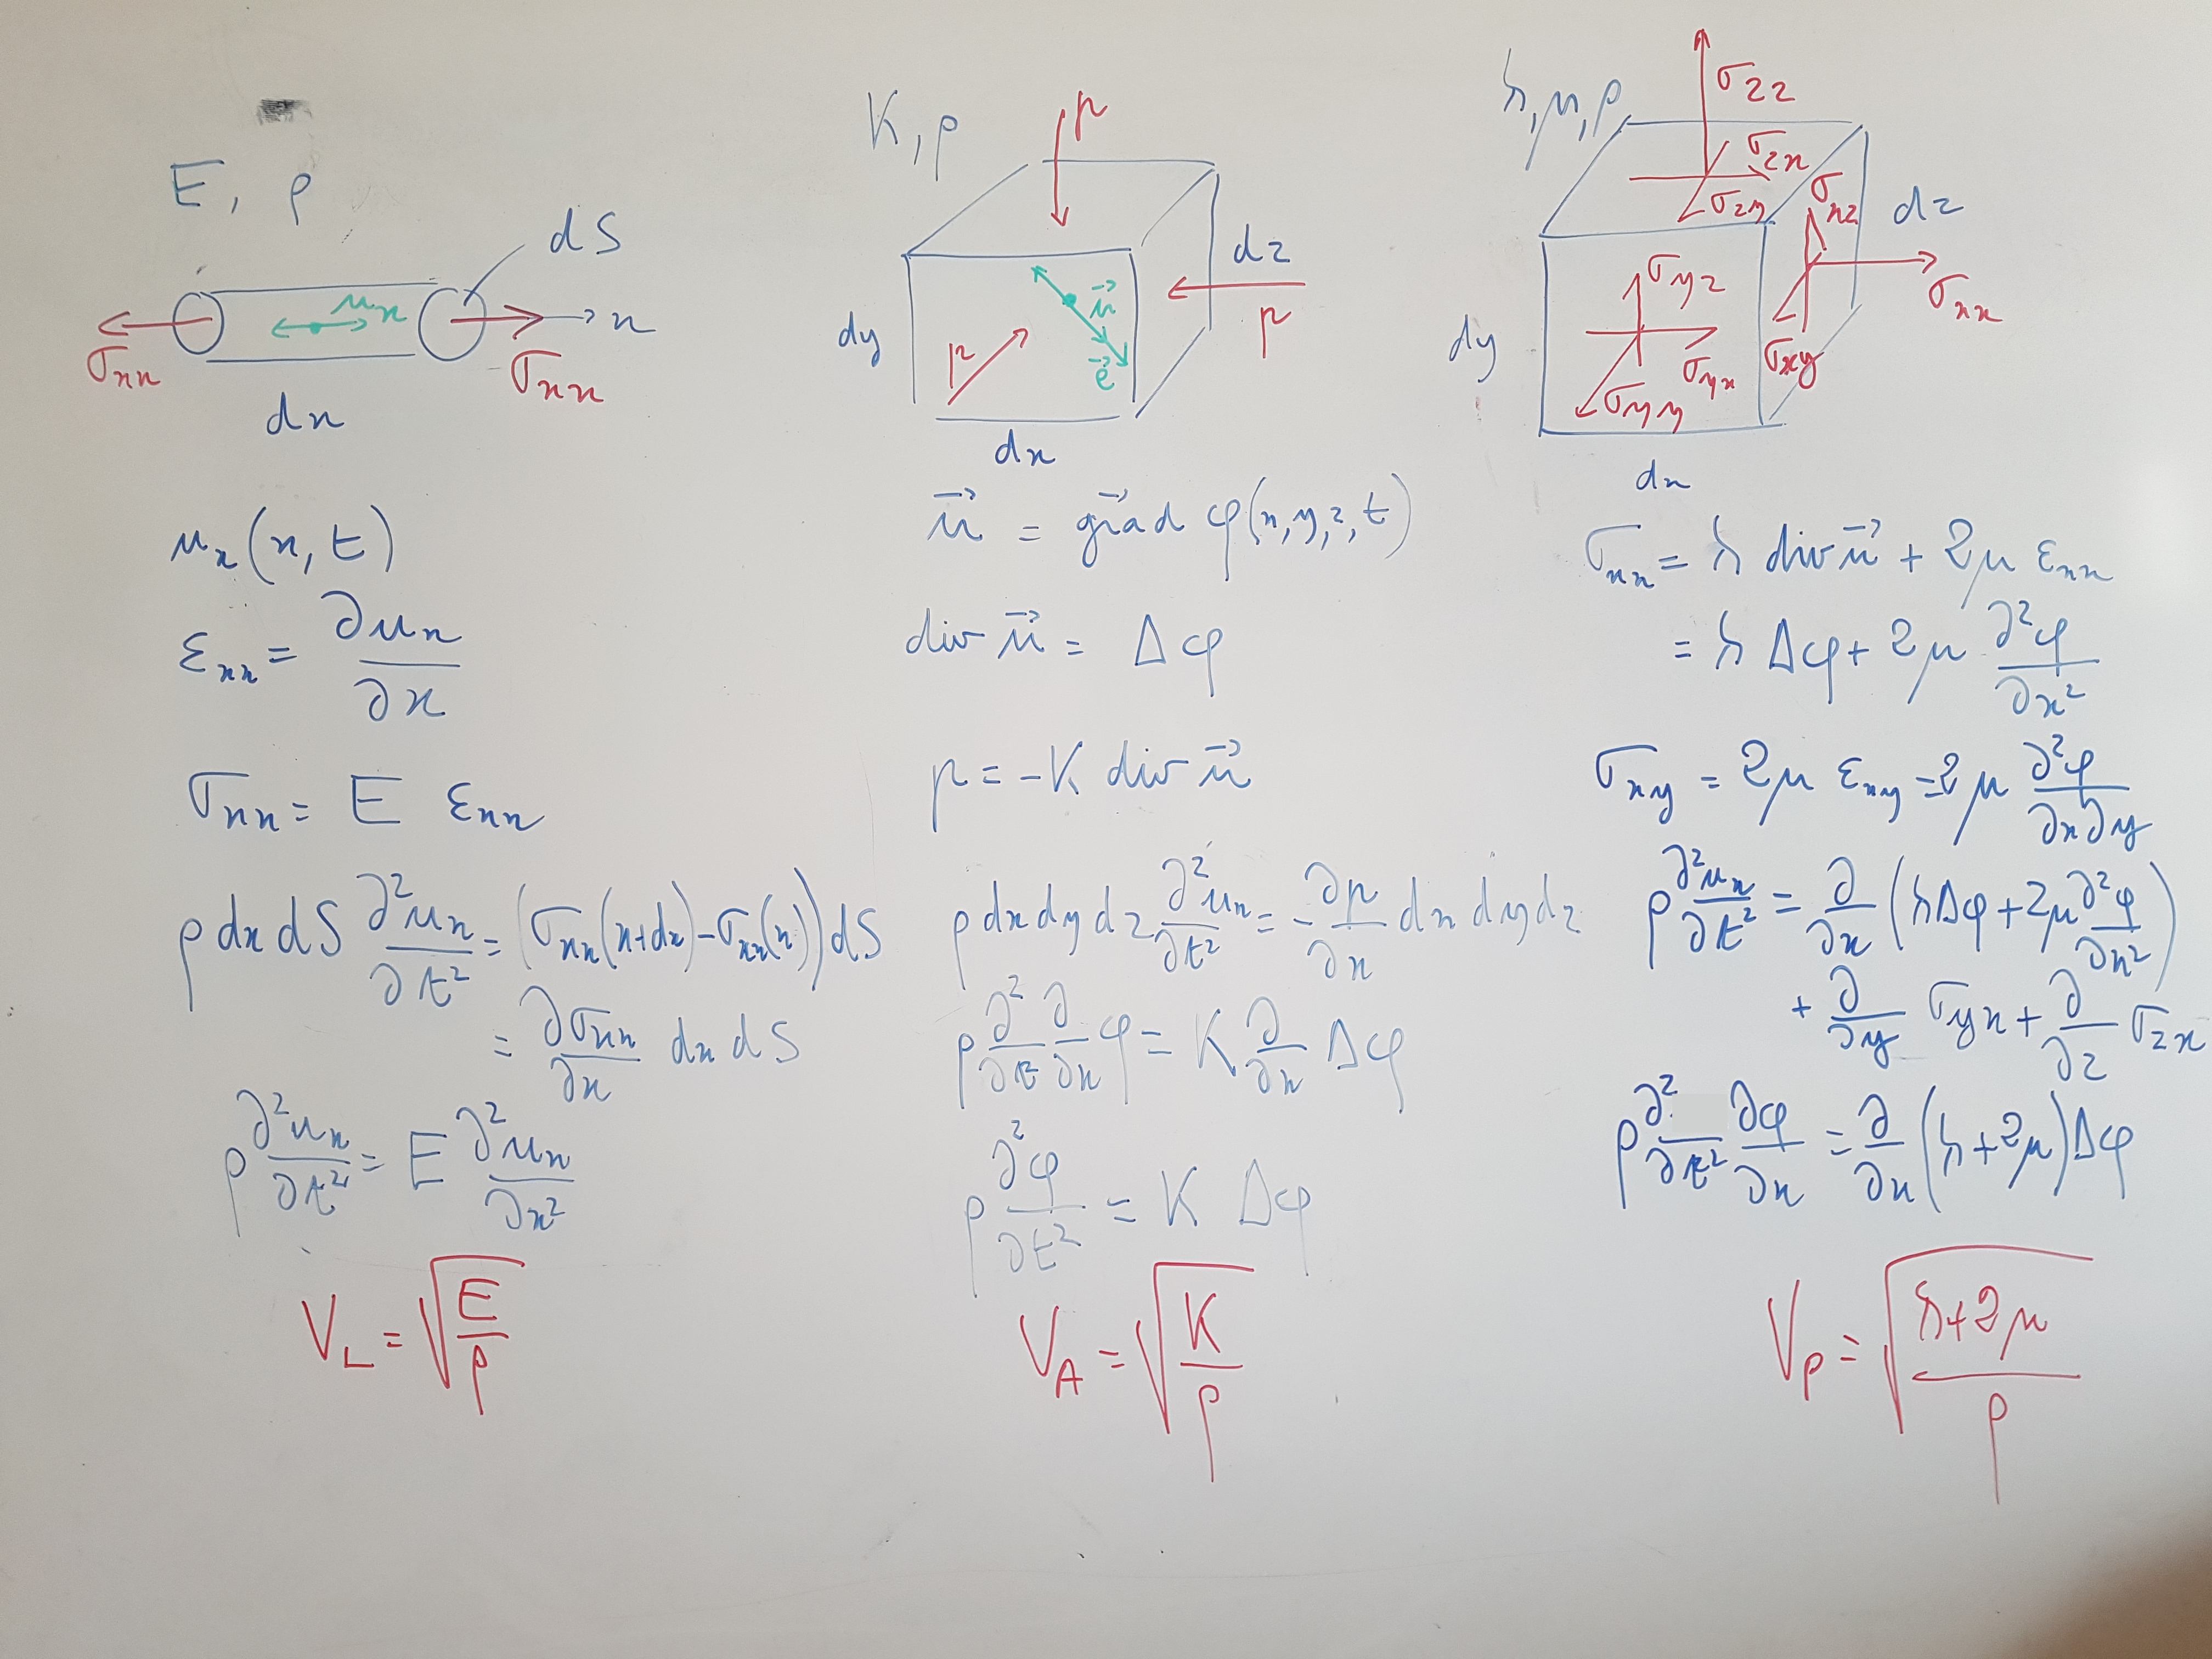 E, ρ
dS
u_x
x
σ_xx
σ_xx
dx
u_x(x,t)
ε_xx = ∂u_x/∂x
σ_xx = E ε_xx
ρ dx dS ∂²u_x/∂t² = (σ_xx(x+dx) - σ_xx(x)) dS
= ∂σ_xx/∂x dx dS
ρ ∂²u_x/∂t² = E ∂²u_x/∂x²
V_L = √(E/ρ)
K, ρ
p
dz
p
u⃗
dy
p
e⃗
dx
u⃗ = gra⃗d φ(x,y,z,t)
div u⃗ = Δφ
p = -K div u⃗
ρ dx dy dz ∂²u_x/∂t² = -∂p/∂x dx dy dz
ρ ∂²/∂t ∂/∂x φ = K ∂/∂x Δφ
ρ ∂²φ/∂t² = K Δφ
V_A = √(K/ρ)
λ, μ, ρ
σ_zz
σ_zx
σ_zy
σ_xz
dz
σ_xx
σ_yz
dy
σ_yx
σ_xy
σ_yy
dx
σ_xx = λ div u⃗ + 2μ ε_xx
= λ Δφ + 2μ ∂²φ/∂x²
σ_xy = 2μ ε_xy = 2μ ∂²φ/∂x∂y
ρ ∂²u_x/∂t² = ∂/∂x (λΔφ + 2μ ∂²φ/∂x²)
+ ∂/∂y σ_yx + ∂/∂z σ_zx
ρ ∂²/∂t² ∂φ/∂x = ∂/∂x (λ+2μ)Δφ
V_P = √((λ+2μ)/ρ)